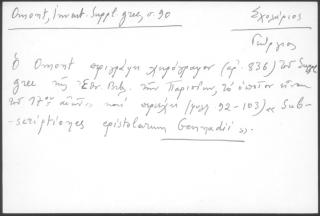 Omont, Invent. Suppl. grec, σ. 90
Σχολάριος
Γεώργιος
Ὁ Omont περιγράφει χειρόγραφον (ἀρ. 836) τοῦ Suppl.
grec τῆς Ἐθν. Βιβ. τῶν Παρισίων, τὸ ὁποῖον εἶναι
τοῦ 17ου αἰῶνος καὶ περιέχει (φύλλ 92-103) « Sub-
-scriptiones epistolarum Gennadii ».